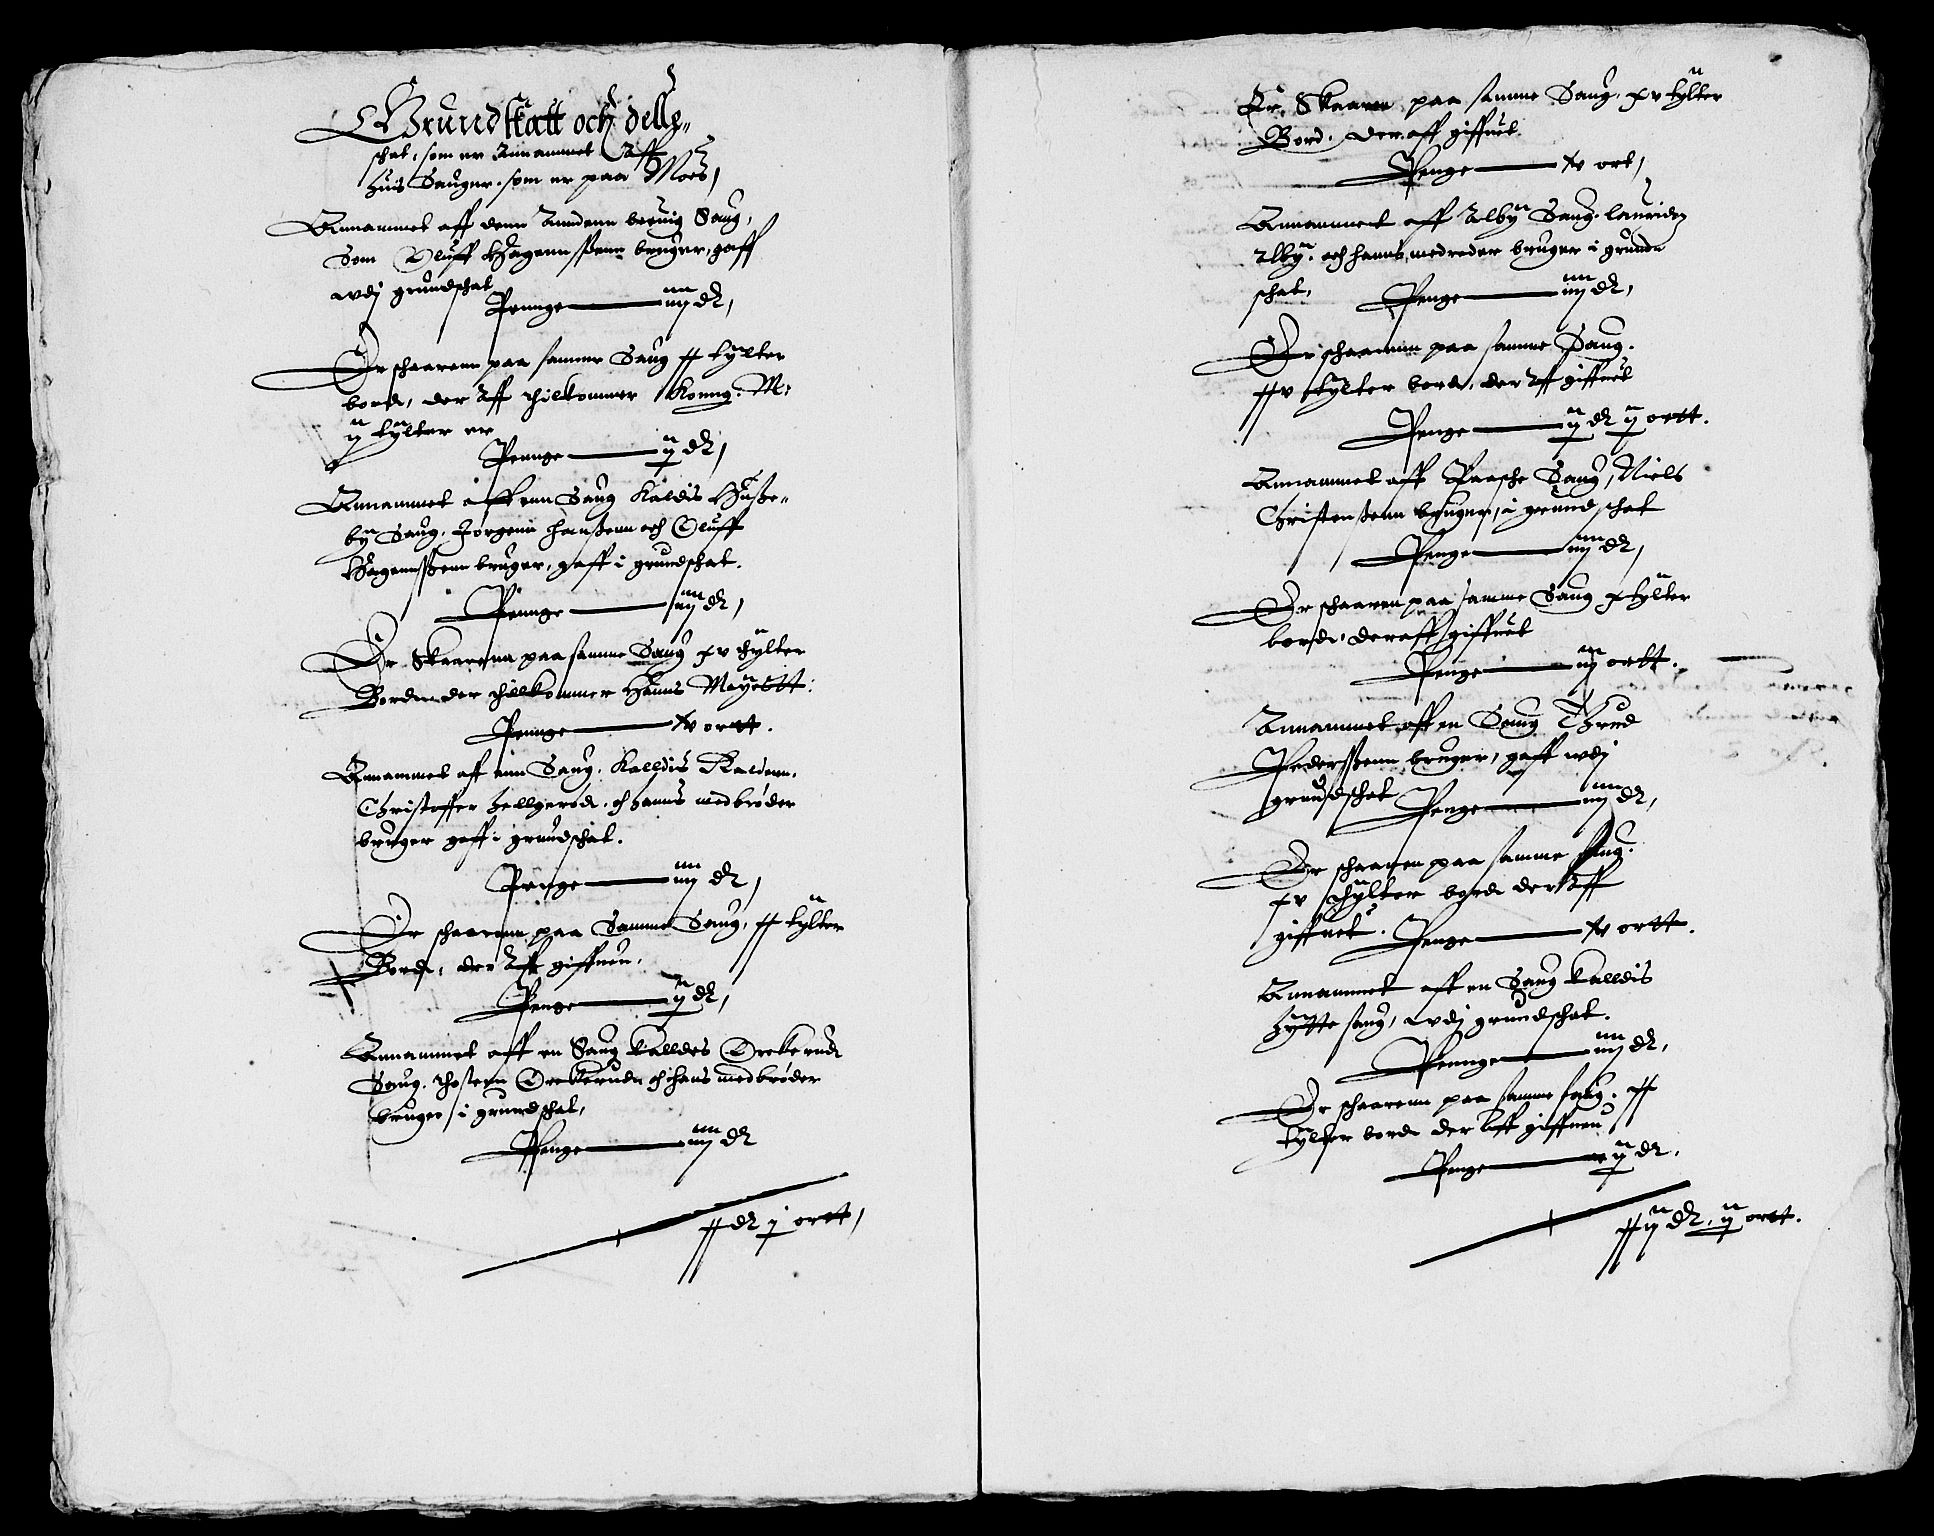 Grundskatt och delle-
schat, som er Annammet Aff
huis Sauger. som er paa Mors,
Annammet aff denn Anndenn Saug,
Som Oluff Haagennssenn bruger, gaff
udj grundschat
Pennge iiij dr,
Er schaarenn paa samme Saug xx tylter
bord, der Aff thilkommer Konng. M:
ij tylter er
Pennge ij dr,
Annammet aff enn Saug Kaldis Husse-
by Saug. Jorgenn Hanssenn och Oluff
Haagennssenn bruger, gaff i grundschat.
Pennge iiij dr,
Er Skaarenn paa samme Saug xv tylter
Bord der thilkommer Hanns Mayestt:
Pennge vi ortt.
Annammet aff enn Saug. Kalldis
Christoffer Hellgerød. och hanns medbrøder
bruger gaff i grundschat.
Penge iiij dr,
Er schaarenn paa Samme Saug, xx tylter
Bord, der Aff giffuen.
Penge ij dr,
Annammet aff en Saug kalldes Orekerud
Saug. thostenn Orekerudn och hans medbrøder
bruger i grundschat,
Penge iiij dr
xx dr j ortt,
Er Skaaren paa samme Saug. xv tylter
Bord. der aff giffuet.
Penge vi ort,
Annammet aff Alby Saug. lauridz
Alby. och hanns medreder bruger i grund
schat, Penge iiij dr,
Er schaarenn paa samme Saug.
xxv tylter bord, der Aff giffuet
Penge ij dr ij ortt.
Annammet aff Paasche Saug, Niels
Christenssenn bruger, i grundschat
Penge iiij dr,
Er schaaren paa samme Saug x tylter
bord, der aff giffuet
Penge iiij ortt.
Annammet aff en Saug Thrud
Pederssenn bruger, gaff udj
grundschat Penge iiij dr,
Er schaaren paa samme saug.
xv thylter bord der Aff
giffuet. Penge vi ortt.
Annammet aff en Saug kalldis
hytte saug, udj grundschat.
Pennge iiij dr,
Er schaarenn paa samme saug. xx
tylter bord der Aff giffuen
Penge ij dr.
xxij dr, ij ortt.